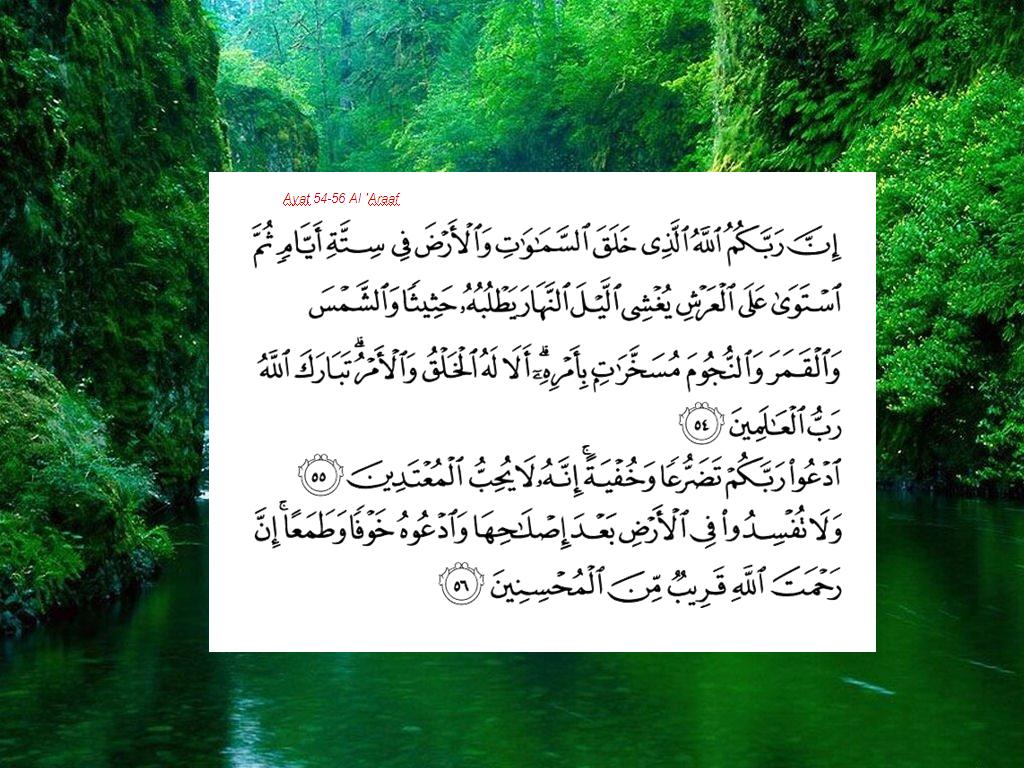 Ayat 54-56 Al 'Araaf
إِنَّ رَبَّكُمُ ٱللَّهُ ٱلَّذِى خَلَقَ ٱلسَّمَـٰوَٰتِ وَٱلْأَرْضَ فِى سِتَّةِ أَيَّامٍ ثُمَّ
ٱسْتَوَىٰ عَلَى ٱلْعَرْشِ يُغْشِى ٱلَّيْلَ ٱلنَّهَارَ يَطْلُبُهُۥ حَثِيثًا وَٱلشَّمْسَ
وَٱلْقَمَرَ وَٱلنُّجُومَ مُسَخَّرَٰتٍۭ بِأَمْرِهِۦٓ ۗ أَلَا لَهُ ٱلْخَلْقُ وَٱلْأَمْرُ ۗ تَبَارَكَ ٱللَّهُ
رَبُّ ٱلْعَـٰلَمِينَ ٥٤
ٱدْعُوا۟ رَبَّكُمْ تَضَرُّعًا وَخُفْيَةً ۚ إِنَّهُۥ لَا يُحِبُّ ٱلْمُعْتَدِينَ ٥٥
وَلَا تُفْسِدُوا۟ فِى ٱلْأَرْضِ بَعْدَ إِصْلَـٰحِهَا وَٱدْعُوهُ خَوْفًا وَطَمَعًا ۚ إِنَّ
رَحْمَتَ ٱللَّهِ قَرِيبٌ مِّنَ ٱلْمُحْسِنِينَ ٥٦